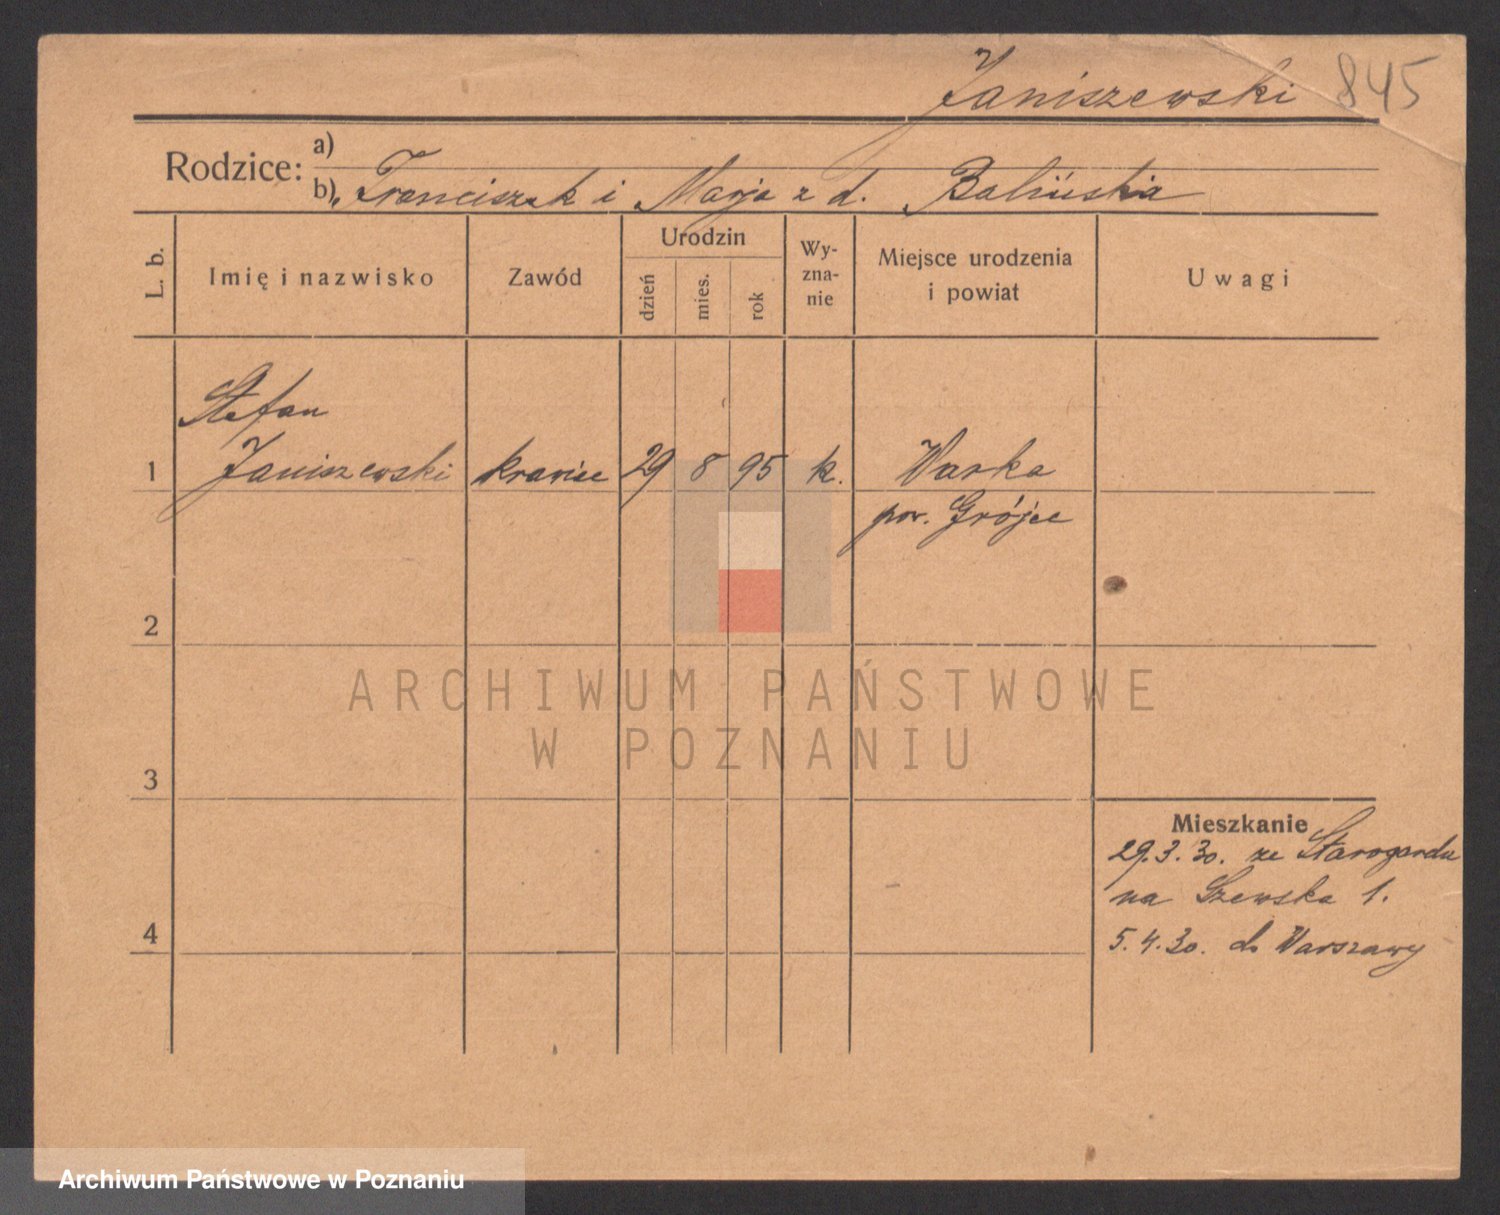 Janiszewski 845
Rodzice: a)
b) Franciszek i Marja z d. Balińska
L. b.
Imię i nazwisko
Zawód
Urodzin
dzień
mies.
rok
Wy-
zna-
nie
Miejsce urodzenia
i powiat
Uwagi
Stefan
1 Janiszewski krawiec 29 8 95 k. Warka
pow. Grójec
2
3
4
Mieszkanie
29.3.30. ze Starogardu
na Szewska 1.
5.4.30. do Warszawy
ARCHIWUM PAŃSTWOWE
W POZNANIU
Archiwum Państwowe w Poznaniu